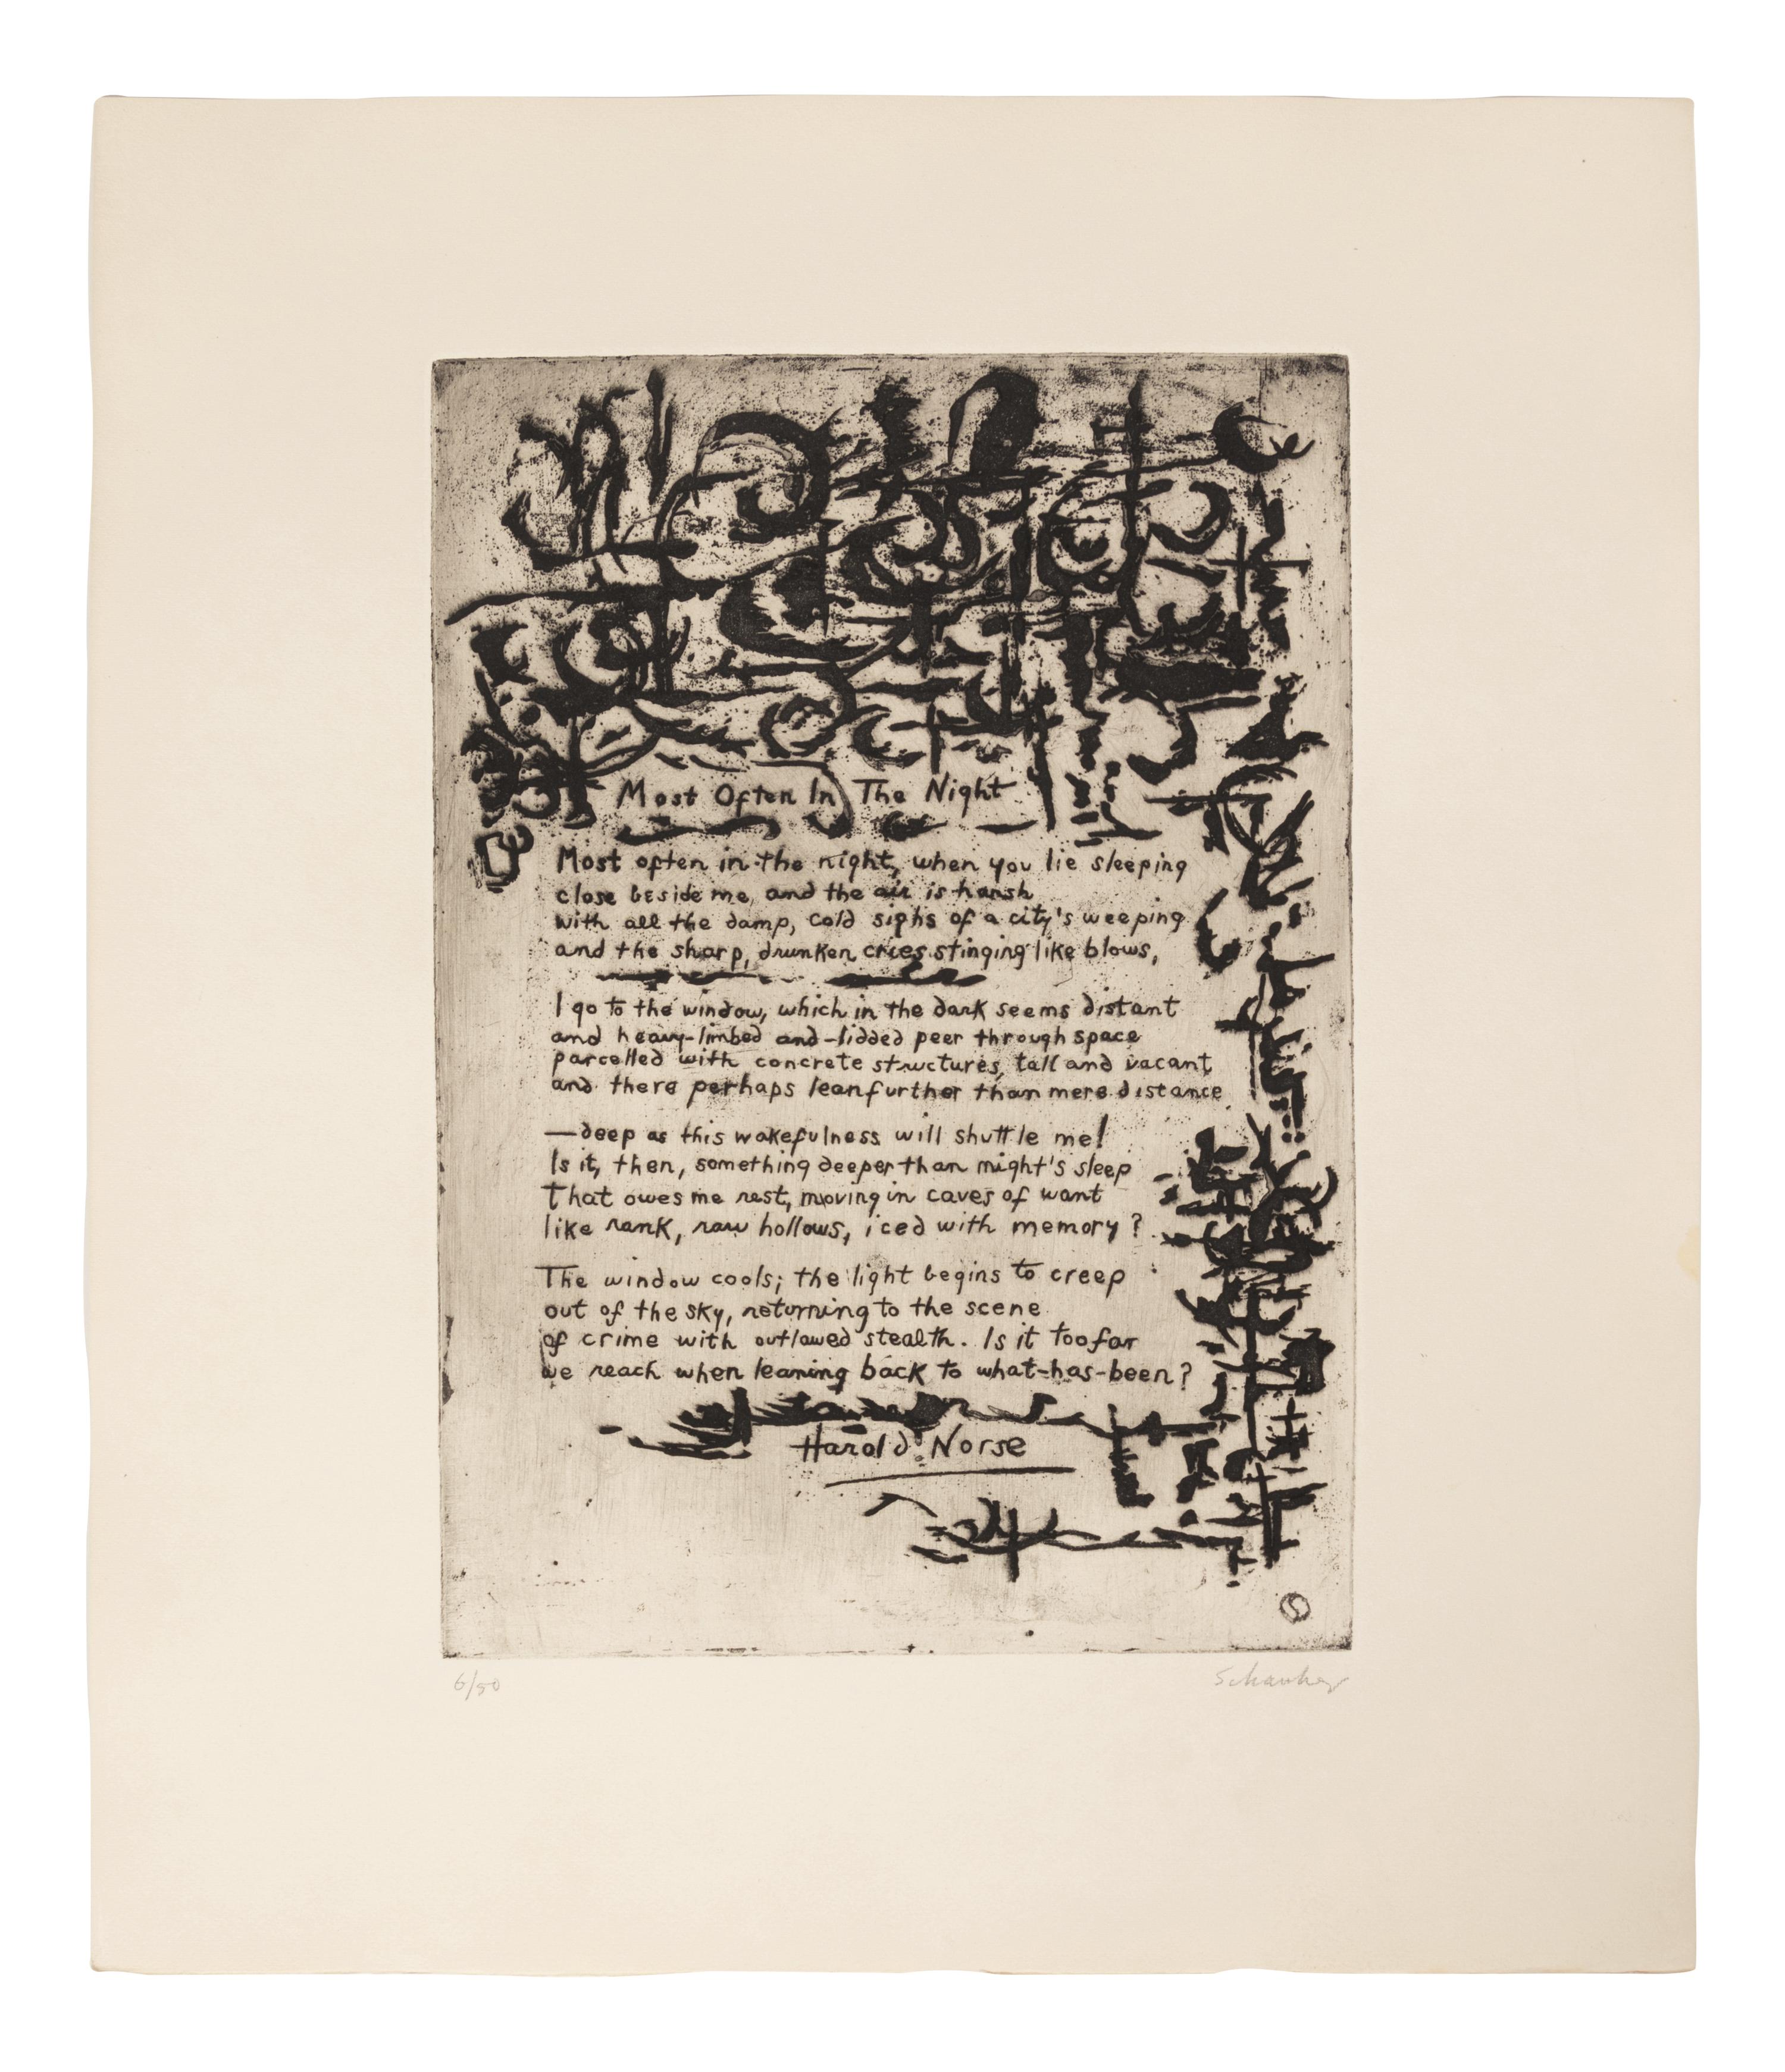 Most Often In The Night
Most often in the night, when you lie sleeping
close beside me, and the air is harsh
with all the damp, cold sighs of a city's weeping
and the sharp, drunken cries stinging like blows,
I go to the window, which in the dark seems distant
and heavy-limbed and-lidded peer through space
parcelled with concrete structures, tall and vacant
and there perhaps lean further than mere distance
—deep as this wakefulness will shuttle me!
Is it, then, something deeper than night's sleep
that owes me rest, moving in caves of want
like rank, raw hollows, iced with memory?
The window cools; the light begins to creep
out of the sky, returning to the scene
of crime with outlawed stealth. Is it too far
we reach when leaning back to what-has-been?
Harold Norse
S
6/50
Schanker